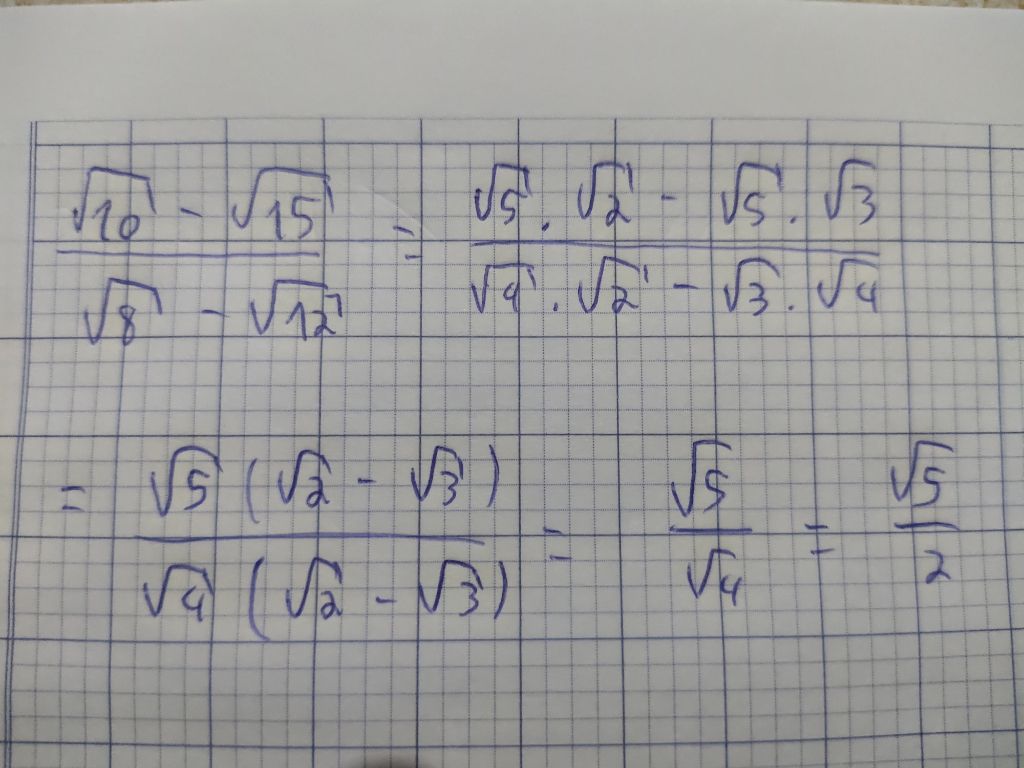 \frac{\sqrt{10} - \sqrt{15}}{\sqrt{8} - \sqrt{12}} = \frac{\sqrt{5} . \sqrt{2} - \sqrt{5} . \sqrt{3}}{\sqrt{4} . \sqrt{2} - \sqrt{3} . \sqrt{4}}
= \frac{\sqrt{5} (\sqrt{2} - \sqrt{3})}{\sqrt{4} (\sqrt{2} - \sqrt{3})} = \frac{\sqrt{5}}{\sqrt{4}} = \frac{\sqrt{5}}{2}